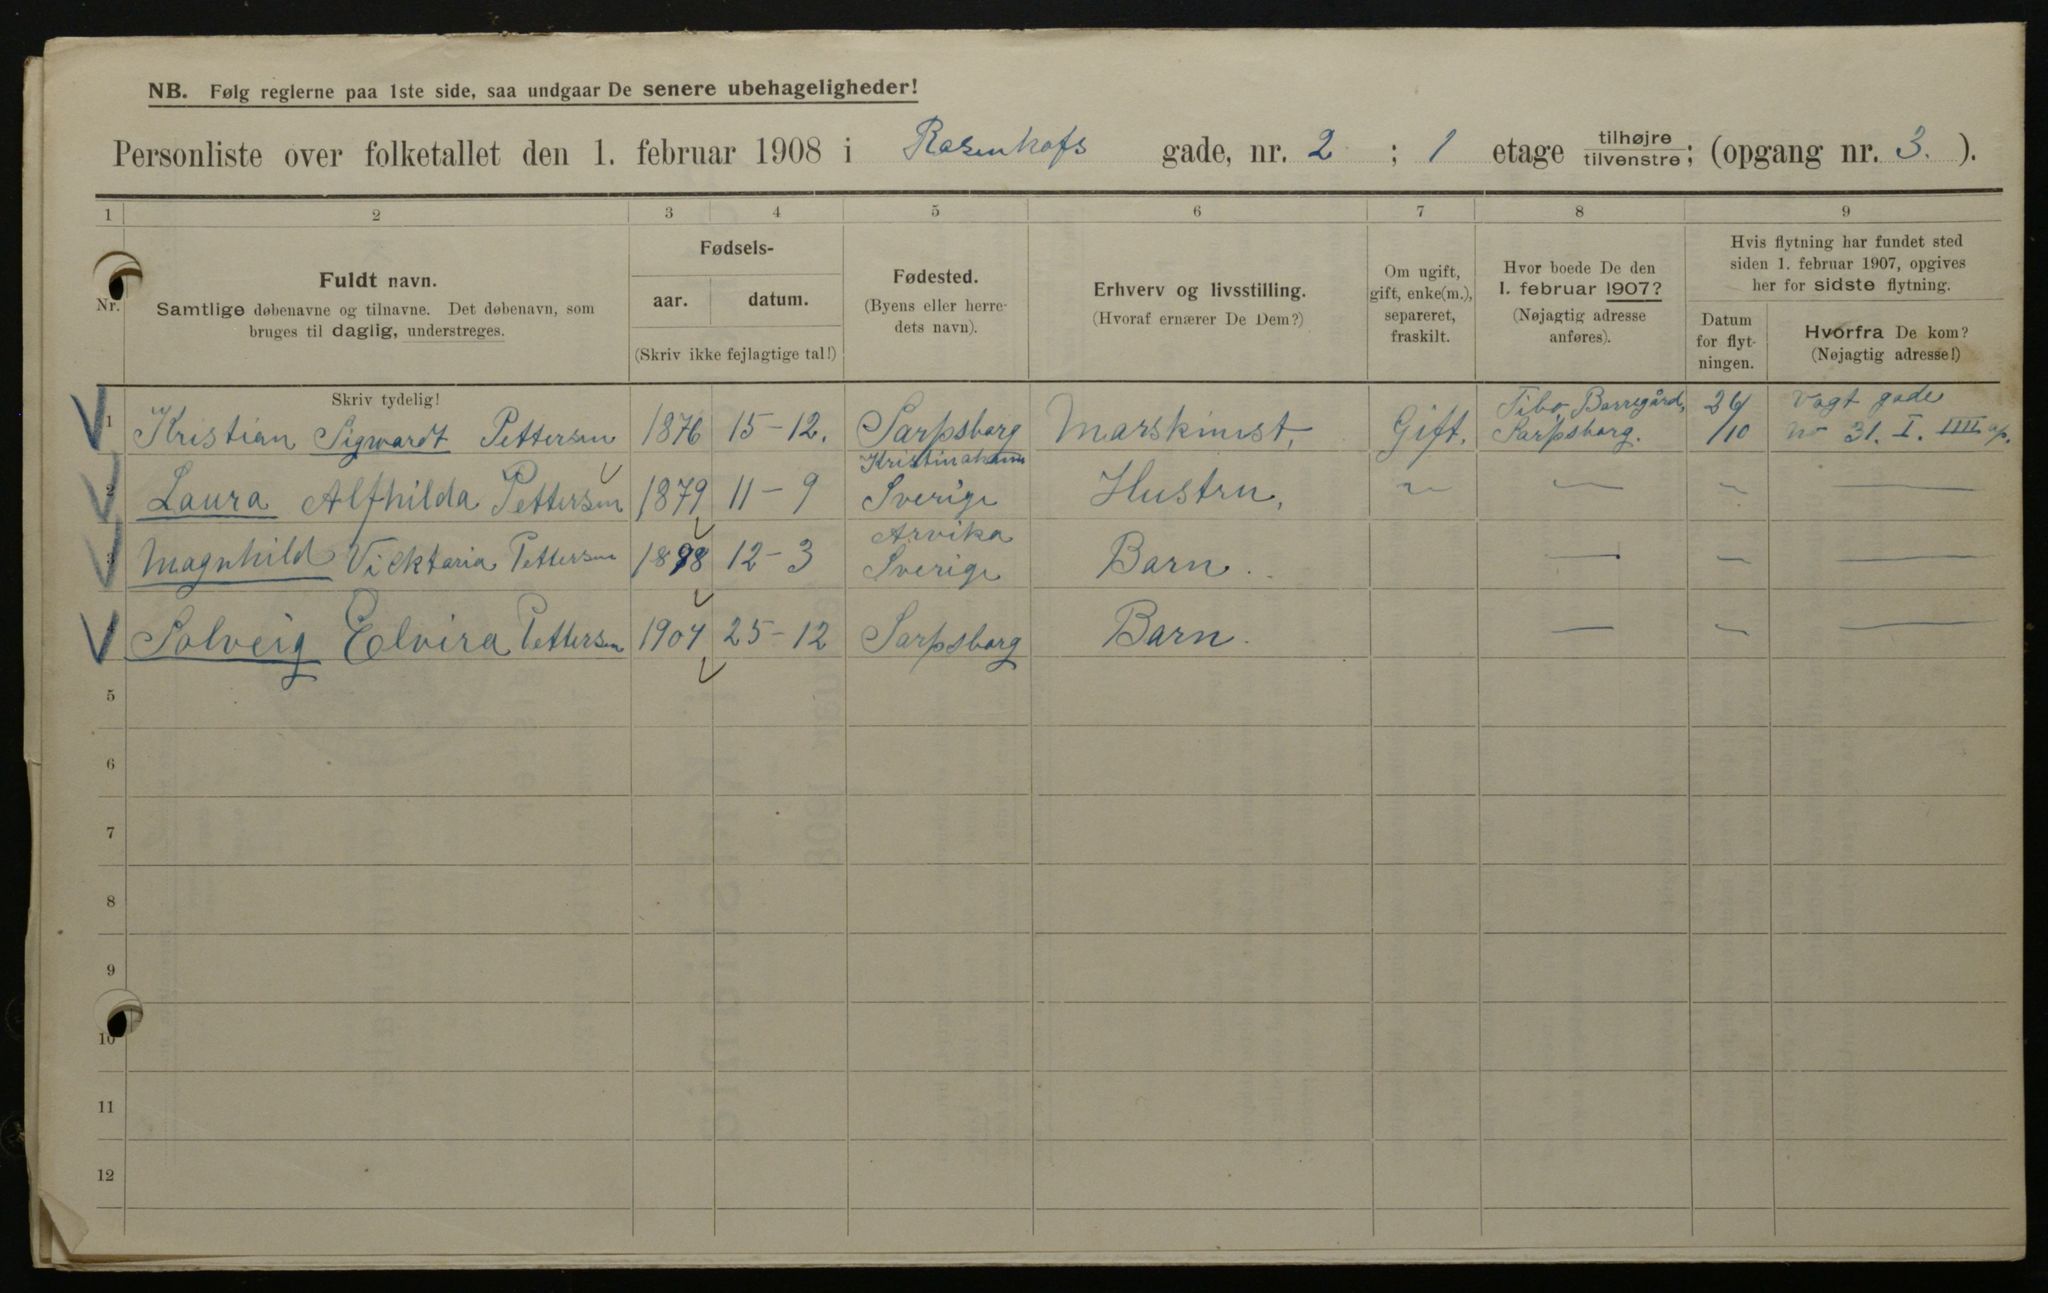 NB. Følg reglerne paa 1ste side, saa undgaar De senere ubehageligheder!
Personliste over folketallet den 1. februar 1908 i Rosenhofs gade, nr. 2 ; 1 etage tilhøjre tilvenstre; (opgang nr. 3. ).
1 2 3 4 5 6 7 8 9
Nr.
Fuldt navn.
Samtlige døbenavne og tilnavne. Det døbenavn, som
bruges til daglig, understreges.
Fødsels-
aar. datum.
(Skriv ikke fejlagtige tal!)
Fødested.
(Byens eller herre-
dets navn).
Erhverv og livsstilling.
(Hvoraf ernærer De Dem?)
Om ugift,
gift, enke(m.),
separeret,
fraskilt.
Hvor boede De den
1. februar 1907?
(Nøjagtig adresse
anføres).
Hvis flytning har fundet sted
siden 1. februar 1907, opgives
her for sidste flytning.
Datum
for flyt-
ningen.
Hvorfra De kom?
(Nøjagtig adresse!)
Skriv tydelig!
1 Kristian Sigwardt Pettersen 1876 15-12. Sarpsborg Marskinist, Gift. Sarpsborg. 26/10 Vogt gade
no 31. I. IIII op.
Laura Alfhilda Pettersen 1879 11-9 Kristinahamn
Sverige Hustru, ~ — ~ —
Magnhild Vicktoria Pettersen 1898 12-3 Arvika
Sverige Barn. — — —
Solveig Elvira Pettersen 1904 25-12 Sarpsborg Barn. — ~ —
5
6
7
8
9
10
11
12